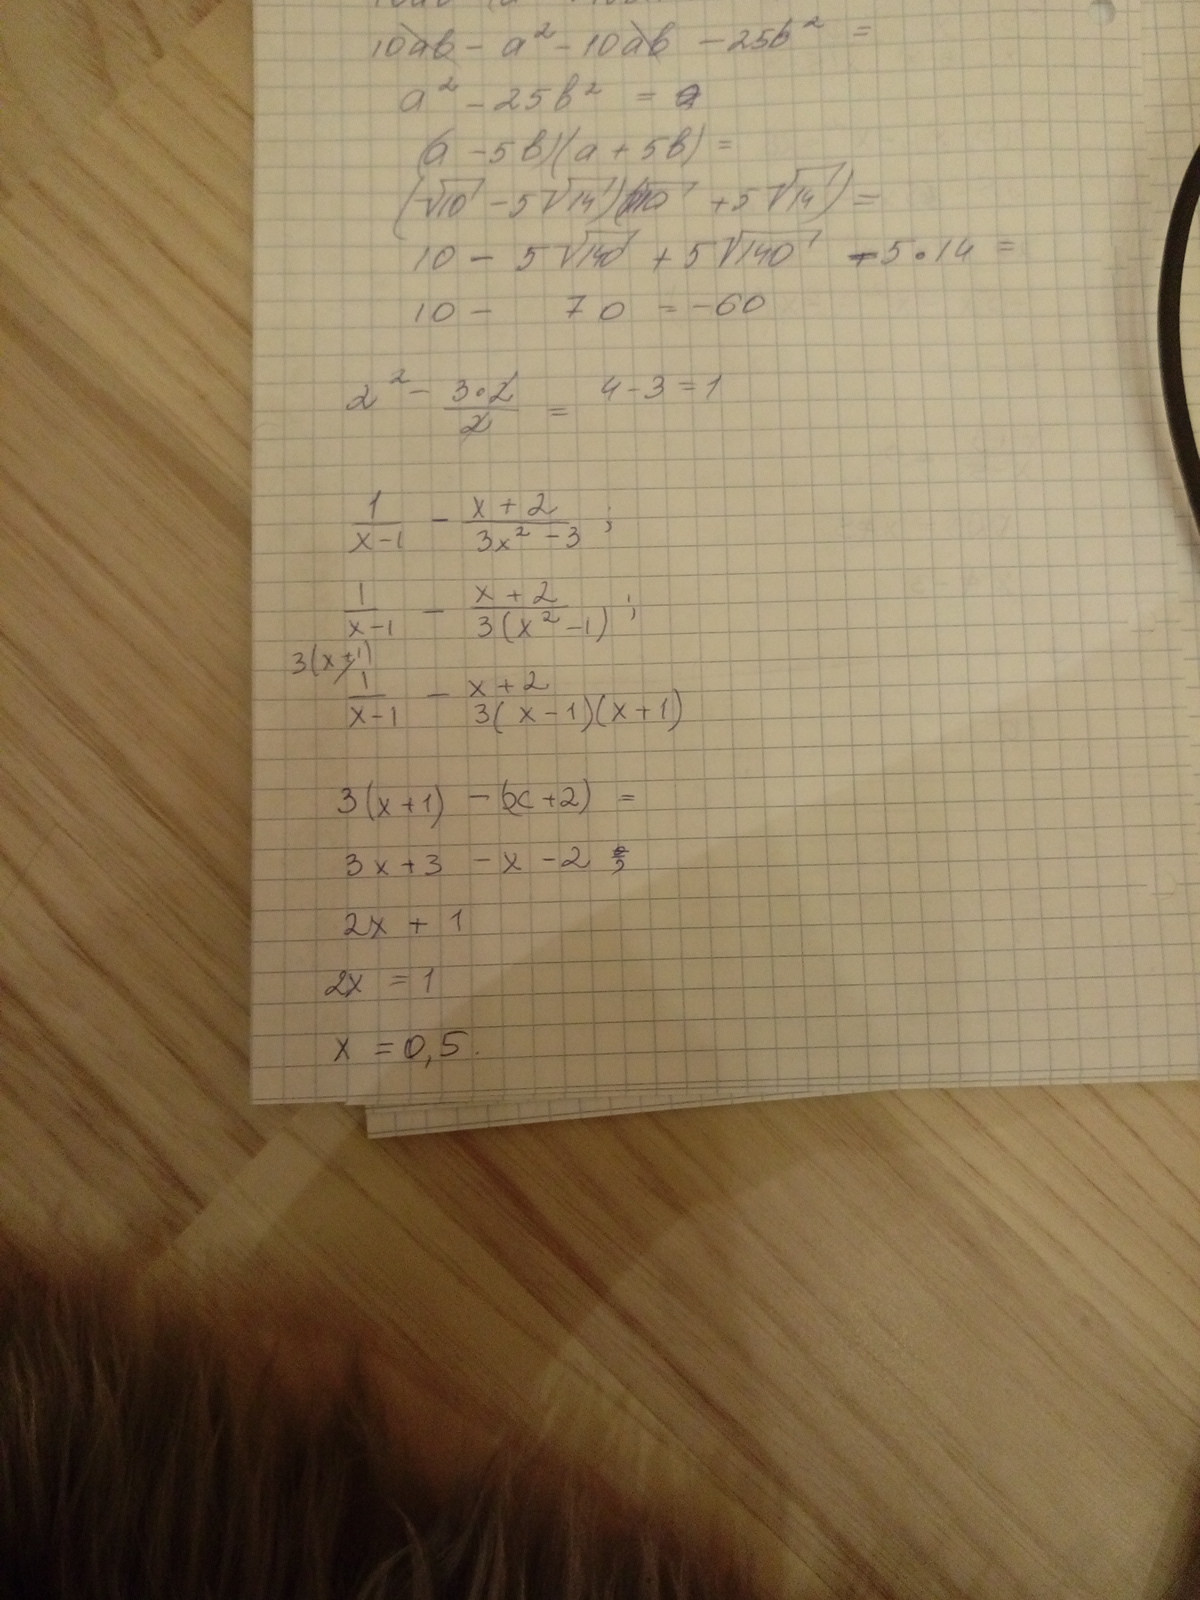 10ab - a² - 10ab - 25b² =
a² - 25b² =
(a - 5b)(a + 5b) =
(√10 - 5√14)(√10 + 5√14) =
10 - 5√140 + 5√140 - 5 • 14 =
10 - 70 = -60
2² - 3•2/2 = 4 - 3 = 1
1/(x-1) - (x+2)/(3x² - 3) ;
1/(x-1) - (x+2)/(3(x² - 1)) ;
3(x+1)
1/(x-1) - (x+2)/(3(x-1)(x+1))
3(x+1) - (x+2) =
3x+3 - x - 2
2x + 1
2x = 1
x = 0,5.